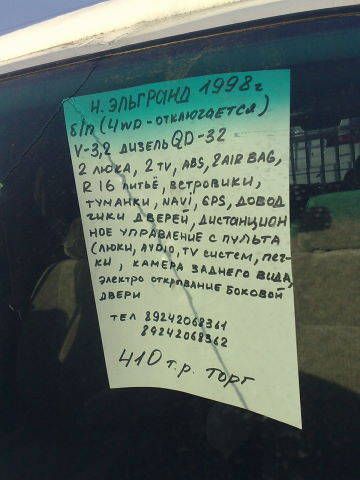 Н. ЭЛЬГРАНД 1998г
б/п (4WD-отключается)
V-3,2 дизель QD-32
2 люка, 2 TV, ABS, 2AIR BAG,
R 16 литьё, ветровики,
туманки, NAVI, GPS, довод
чики дверей, дистанцион
ное управление с пульта
(люки, AУDIO, TV систем, печ-
ки, камера заднего вида,
электро открывание боковой
двери
тел 89242068361
89242068362
410 т.р. торг